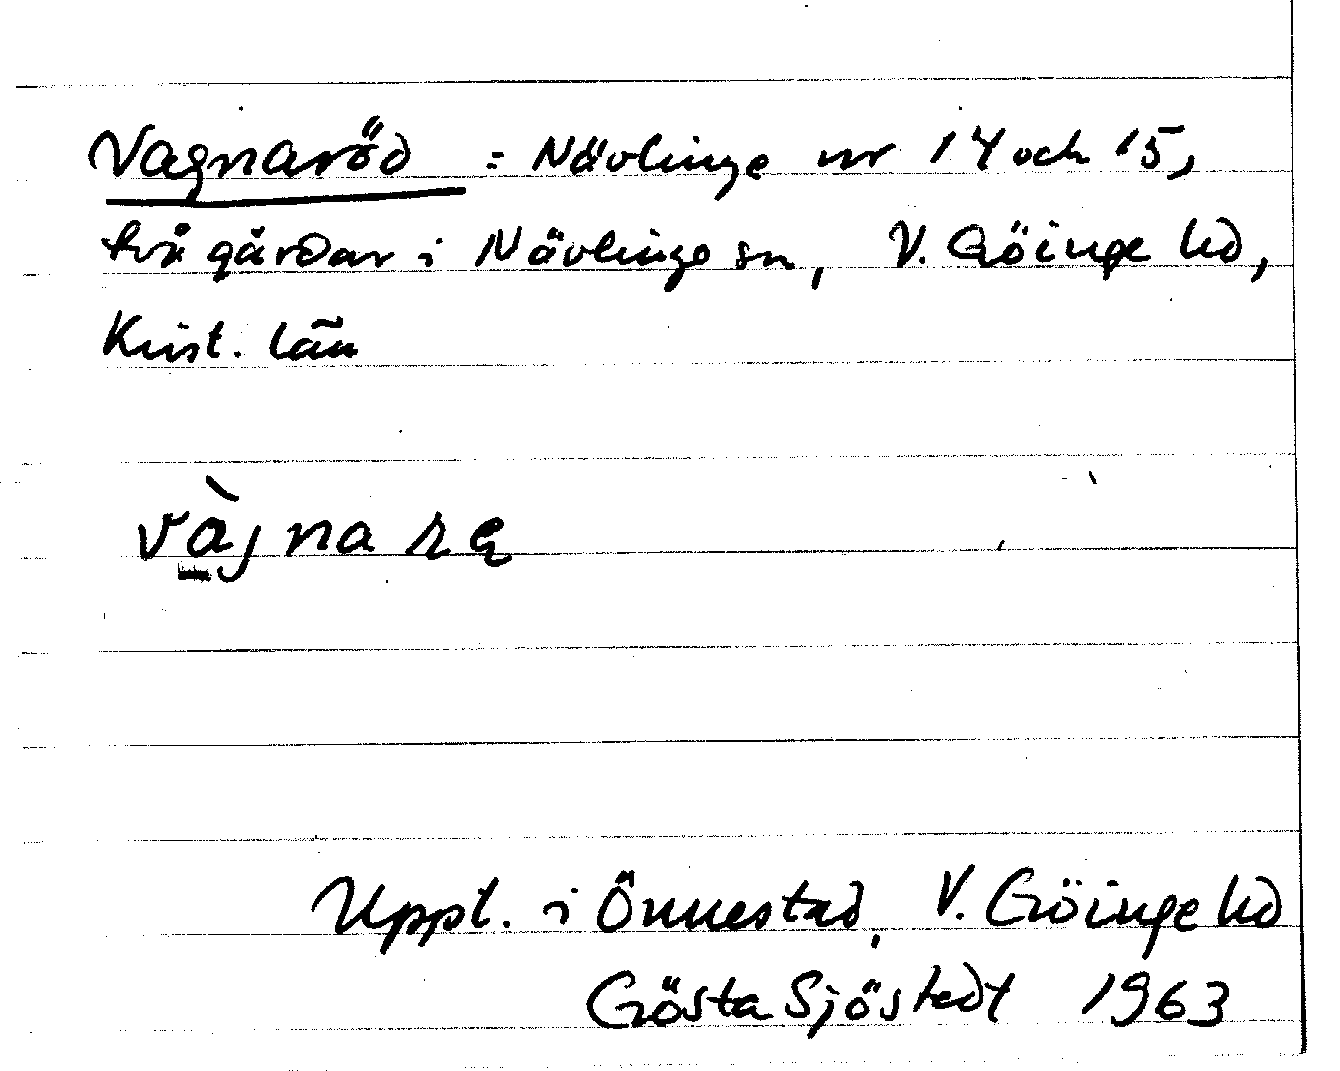 Vagnaröd = Nävlinge nr 14 och 15,
två gårdar i Nävlinge sn, V. Göinge hd,
Krist. län
vàjna rę
Uppt. i Önnestad, V. Göinge hd
Gösta Sjöstedt 1963